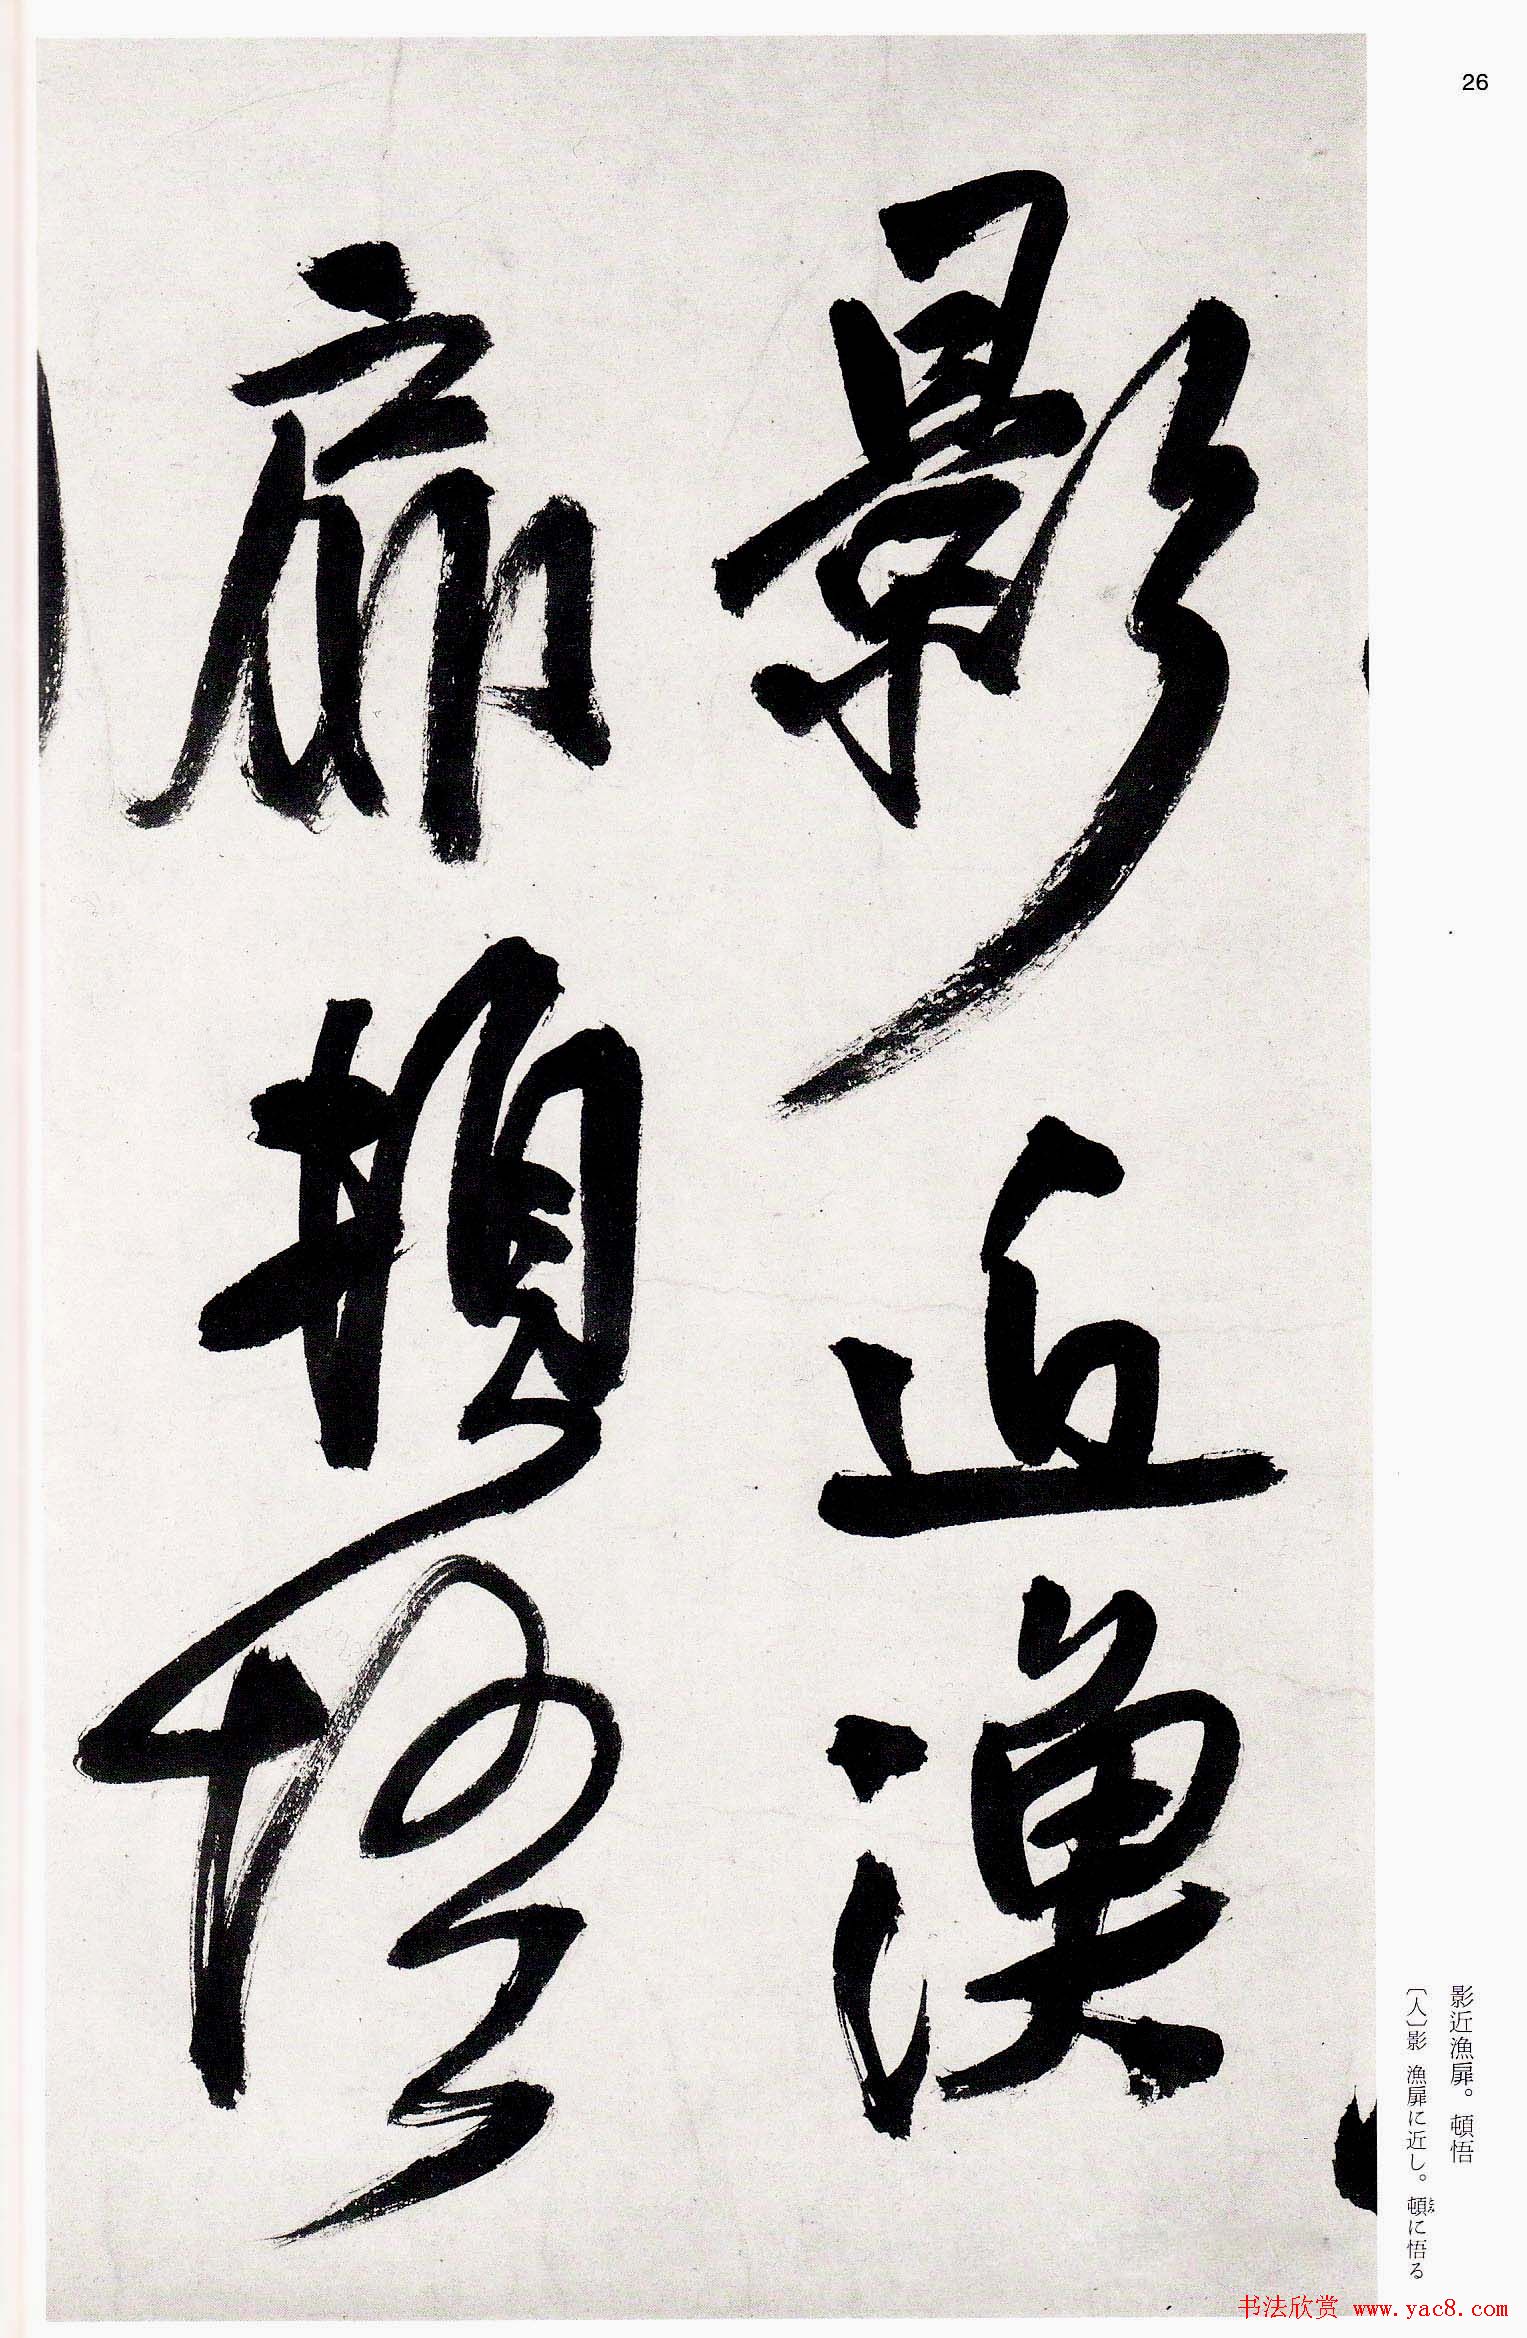 26
影近漁
扉頓悟
影近漁扉。頓悟
〔人〕影 漁扉に近し。頓に悟る
书法欣赏 www.yac8.com